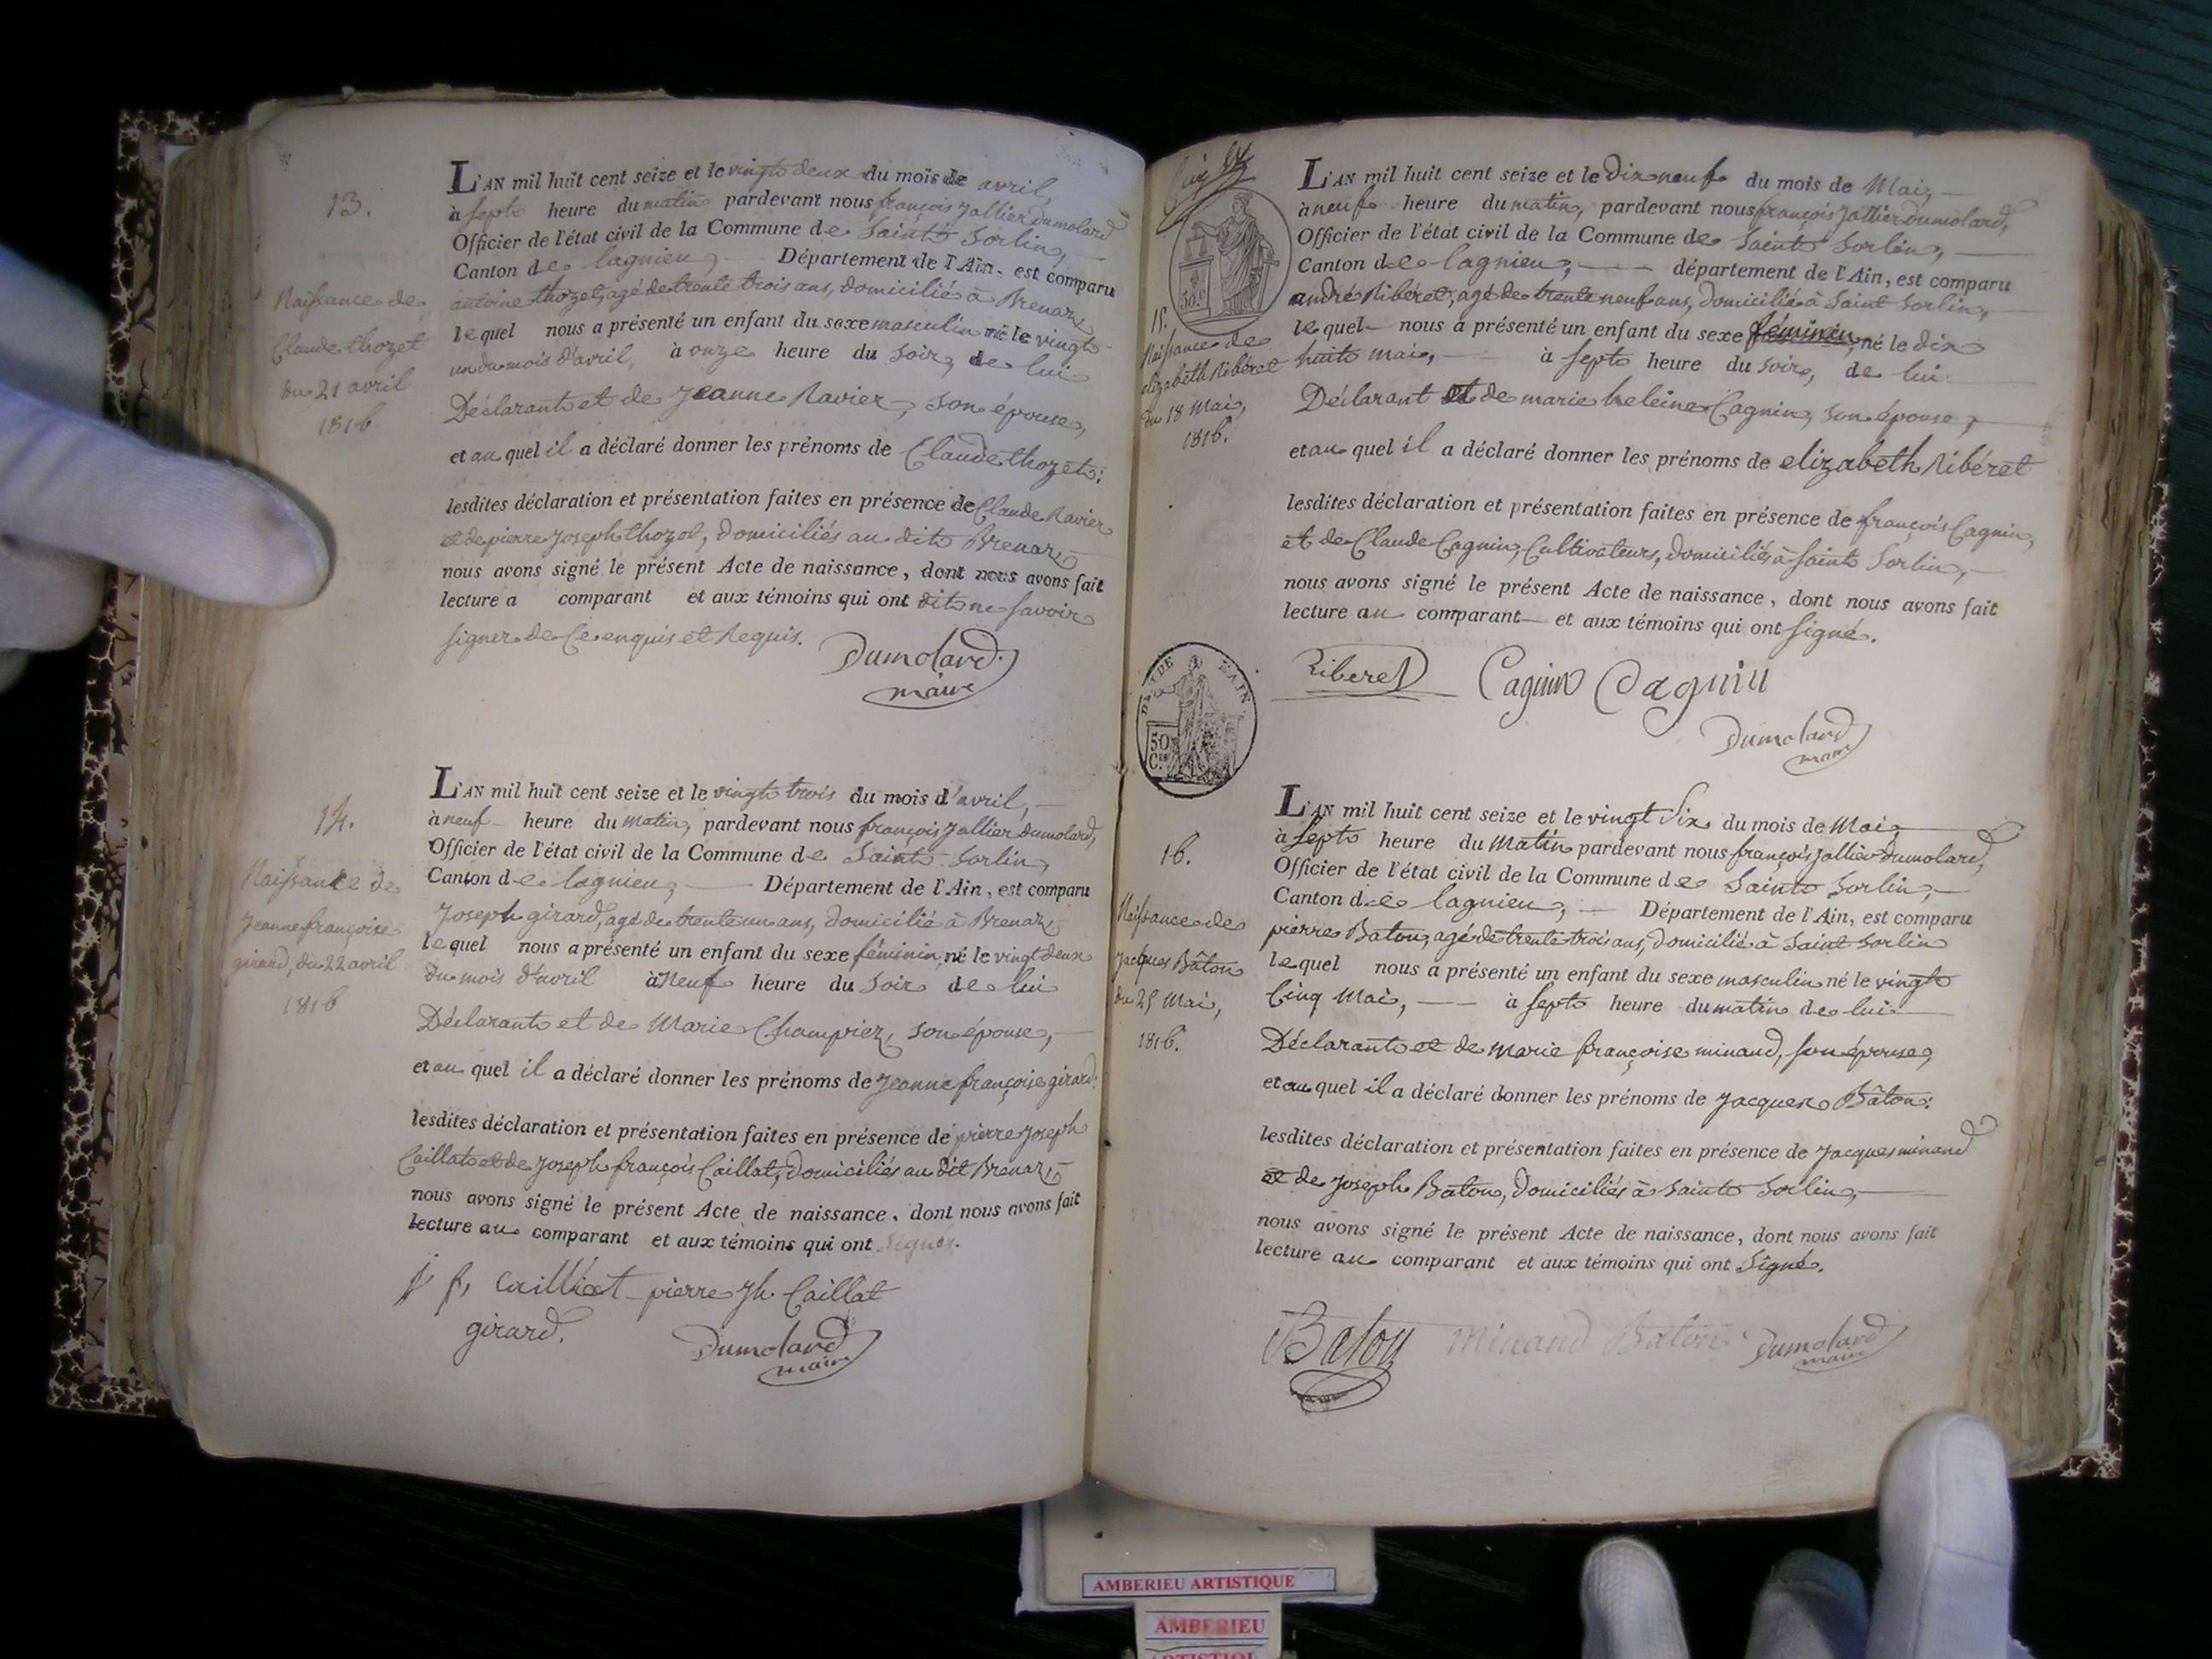 13.
Naissance de
Claude thozet
du 21 avril
1816
L'AN mil huit cent seize et le vingt deux du mois de avril,
à sept heure du matin pardevant nous françois Jallier Dumolard
Officier de l'état civil de la Commune de Saint Sorlin,
Canton de lagnieu, Département de l'Ain, est comparu
antoine thozet, agé de trente trois ans, domicilié à Brenaz
lequel nous a présenté un enfant du sexe masculin né le vingt
un du mois d'avril, à onze heure du soir, de lui
Déclarant et de Jeanne Ravier, son épouse,
et au quel il a déclaré donner les prénoms de Claude thozet:
lesdites déclaration et présentation faites en présence de Claude Ravier
et de pierre Joseph thozet, domiciliés au dit Brenaz
nous avons signé le présent Acte de naissance, dont nous avons fait
lecture a comparant et aux témoins qui ont dit ne savoir
signer de ce enquis et Requis.
Dumolard
maire
14.
Naissance de
Jeanne françoise
girard, du 22 avril
1816
L'AN mil huit cent seize et le vingt trois du mois d'avril,
à neuf heure du matin, pardevant nous françois Jallier Dumolard,
Officier de l'état civil de la Commune de Saint Sorlin,
Canton de lagnieu, Département de l'Ain, est comparu
Joseph girard, agé de trente un ans, domicilié à Brenaz
lequel nous a présenté un enfant du sexe féminin, né le vingt deux
du mois d'avril à Neuf heure du Soir de lui
Déclarant et de Marie Champriez, son épouse,
et au quel il a déclaré donner les prénoms de Jeanne françoise girard:
lesdites déclaration et présentation faites en présence de pierre Joseph
Caillat et de Joseph françois Caillat, domiciliés au dit Brenaz,
nous avons signé le présent Acte de naissance, dont nous avons fait
lecture au comparant et aux témoins qui ont signés.
j f, Cailliat pierre Jh. Caillat
girard.
Dumolard
maire
50 C.
15.
Naissance de
elizabeth Ribéret
du 18 Mai,
1816.
L'AN mil huit cent seize et le Dix neuf du mois de Mai,
à neuf heure du matin, pardevant nous françois Jallier Dumolard,
Officier de l'état civil de la Commune de Saint Sorlin,
Canton de lagnieu, département de l'Ain, est comparu
andré Ribéret, agé de trente neuf ans, domicilié à Saint Sorlin,
lequel nous a présenté un enfant du sexe féminin, né le dix
huit mai, à sept heure du soir, de lui
Déclarant et de marie heleine Cagnin, son épouse,
et au quel il a déclaré donner les prénoms de elizabeth Ribéret
lesdites déclaration et présentation faites en présence de françois Cagnin,
et de Claude Cagnin, Cultivateurs, domiciliés à Saint Sorlin,
nous avons signé le présent Acte de naissance, dont nous avons fait
lecture au comparant et aux témoins qui ont signé.
Riberet Cagnin Cagnin
Dumolard
maire
DE L'AIN
50
C.
16.
Naissance de
Jacques Bâton
du 25 Mai,
1816.
L'AN mil huit cent seize et le vingt Six du mois de Mai,
à Sept heure du Matin pardevant nous françois Jallier Dumolard,
Officier de l'état civil de la Commune de Saint Sorlin,
Canton de lagnieu, Département de l'Ain, est comparu
pierre Baton, agé de trente trois ans, domicilié à Saint Sorlin
lequel nous a présenté un enfant du sexe masculin né le vingt
Cinq Mai, à sept heure du matin de lui
Déclarant et de Marie françoise minand, son épouse,
et au quel il a déclaré donner les prénoms de Jacques Bâton:
lesdites déclaration et présentation faites en présence de Jacques minand
et de Joseph Baton, domiciliés à Saint Sorlin,
nous avons signé le présent Acte de naissance, dont nous avons fait
lecture au comparant et aux témoins qui ont Signé.
Baton Minand Baton Dumolard
maire
AMBERIEU ARTISTIQUE
AMBERIEU
ARTISTIQUE